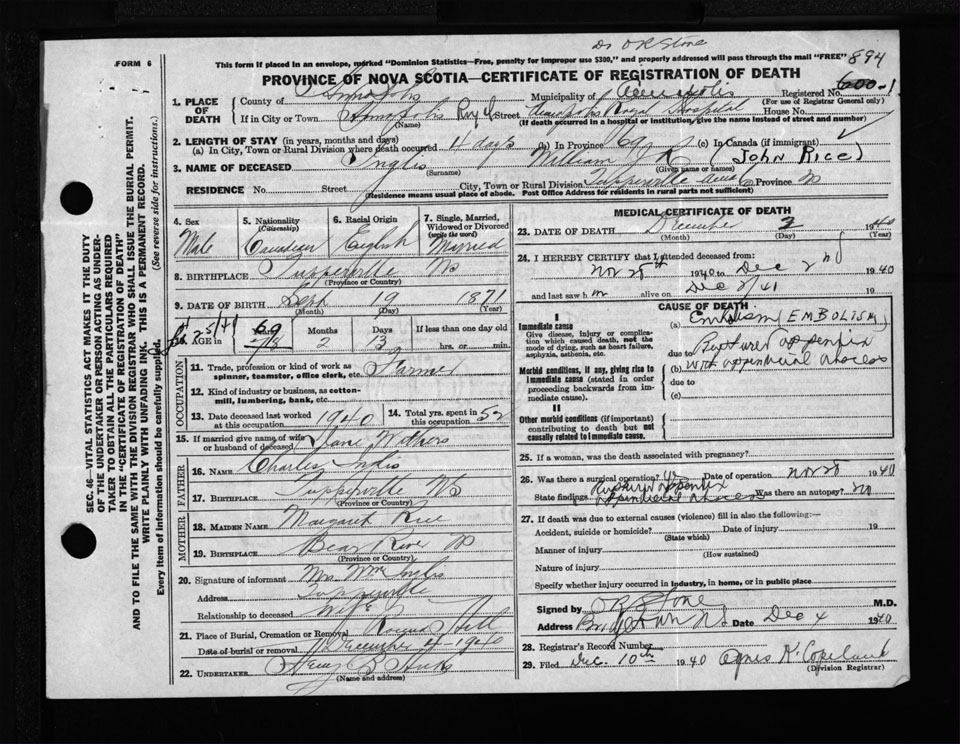 Dr OR Stone
FORM 6
This form if placed in an envelope, marked "Dominion Statistics—Free, penalty for improper use $300," and properly addressed will pass through the mail "FREE" 894
PROVINCE OF NOVA SCOTIA—CERTIFICATE OF REGISTRATION OF DEATH
1. PLACE OF DEATH
County of Annapolis Municipality of Annapolis Registered No. 600-1
(For use of Registrar General only)
If in City or Town Annapolis Royal Street Hospital House No.
(Name) (If death occurred in a hospital or institution, give the name instead of street and number)
2. LENGTH OF STAY (in years, months and days)
(a) In City, Town or Rural Division where death occurred 4 days (b) In Province 69 (c) In Canada (if immigrant)
3. NAME OF DECEASED Inglis William R (John Rice)
(Surname) (Given name or names)
RESIDENCE No. Street City, Town or Rural Division Tupperville Province NS
(Residence means usual place of abode. Post Office Address for residents in rural parts not sufficient)
4. Sex Male
5. Nationality (Citizenship) Canadian
6. Racial Origin English
7. Single, Married, Widowed or Divorced (write the word) Married
8. BIRTHPLACE Tupperville NS
(Province or Country)
9. DATE OF BIRTH Sept 19 1871
(Month) (Day) (Year)
AGE in 69 Months 2 Days 13 If less than one day old hrs. or min.
OCCUPATION
11. Trade, profession or kind of work as spinner, teamster, office clerk, etc. Farmer
12. Kind of industry or business, as cotton-mill, lumbering, bank, etc.
13. Date deceased last worked at this occupation 1940
14. Total yrs. spent in this occupation 52
15. If married give name of wife or husband of deceased Jane Withers
FATHER
16. NAME Charles Inglis
17. BIRTHPLACE Tupperville NS
(Province or Country)
MOTHER
18. MAIDEN NAME Margaret Rice
19. BIRTHPLACE Bear River
(Province or Country)
20. Signature of informant Mrs Wm Inglis
Tupperville
Relationship to deceased Wife
21. Place of Burial, Cremation or Removal Round Hill
Date of burial or removal December 4 1940
22. UNDERTAKER Henry B Hicks
(Name and address)
MEDICAL CERTIFICATE OF DEATH
23. DATE OF DEATH December 2 1940
(Month) (Day) (Year)
24. I HEREBY CERTIFY that I attended deceased from:
Nov 28th 1940 to Dec 2nd 1940
and last saw him alive on Dec 2/41 19
CAUSE OF DEATH
I
Immediate cause
Give disease, injury or complication which caused death, not the mode of dying, such as heart failure, asphyxia, asthenia, etc.
(a) Embolism (EMBOLISM)
due to Ruptured appendix
Morbid conditions, if any, giving rise to immediate cause (stated in order proceeding backwards from immediate cause).
(b) with appendiceal abscess
due to
(c)
II
Other morbid conditions (if important) contributing to death but not causally related to immediate cause.
25. If a woman, was the death associated with pregnancy?
26. Was there a surgical operation? yes Date of operation Nov 28 1940
State findings Ruptured appendix appendiceal abscess Was there an autopsy? no
27. If death was due to external causes (violence) fill in also the following:—
Accident, suicide or homicide? Date of injury 19
(State which)
Manner of injury
(How sustained)
Nature of injury
Specify whether injury occurred in industry, in home, or in public place
Signed by OR Stone M.D.
Address Bridgetown NS Date Dec 4 1940
28. Registrar's Record Number
29. Filed Dec. 10th 1940 Agnes K. Copeland
(Division Registrar)
SEC. 46—VITAL STATISTICS ACT MAKES IT THE DUTY
OF THE UNDERTAKER OR PERSON ACTING AS UNDER-
TAKER TO OBTAIN ALL THE PARTICULARS REQUIRED
IN THE "CERTIFICATE OF REGISTRATION OF DEATH"
AND TO FILE THE SAME WITH THE DIVISION REGISTRAR WHO SHALL ISSUE THE BURIAL PERMIT.
WRITE PLAINLY WITH UNFADING INK. THIS IS A PERMANENT RECORD.
Every item of information should be carefully supplied. (See reverse side for instructions.)